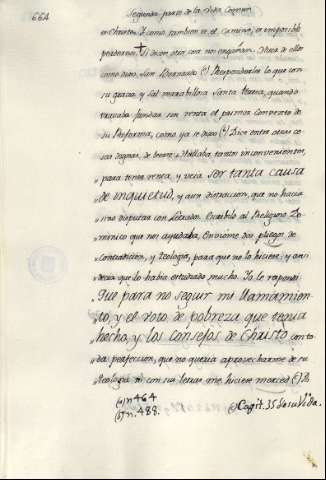 664
Segunda parte de la Vida Comun
en Christo. Y como tambien es el camino, es imposible
perdernos. † Si dicen otra cosa nos engañan. Dice a ellos
como dixo, San Bernardo (*) Responderles lo que con
su gracia, y sal maravillosa Santa Teresa, quando
trataba fundar sin renta el primer Convento de
su Reforma, como ya se dixo (*) Dice entre otras co-
sas dignas de bronce. "Hallaba tantos inconvenientes,
"para tener renta, y veia ser tanta causa
"de inquietud, y aun distraccion, que no hacia
"sino disputar con Letrados. Escribilo al Religioso Do-
"minico que nos ayudaba. Enviome dos pliegos de
"Contradicion, y Teologia, para que no lo hiciese; y asi
"decia que lo habia estudiado mucho. Yo le respondi
"Que para no seguir mi llamamien-
"to, y el voto de pobreza que tenia
"hecho, y los consejos de Christo con to-
"da perfeccion, que no queria aprovecharme de su
"Teologia ni con sus letras me hiciese merced (*)
(a) n. 464
(b) n. 488.
(c) Cap. 35 de su Vida.